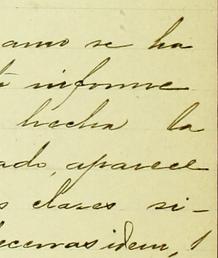 amo se ha
informe
hecha la
ado, aparece
s clases si-
becerras idem, 1